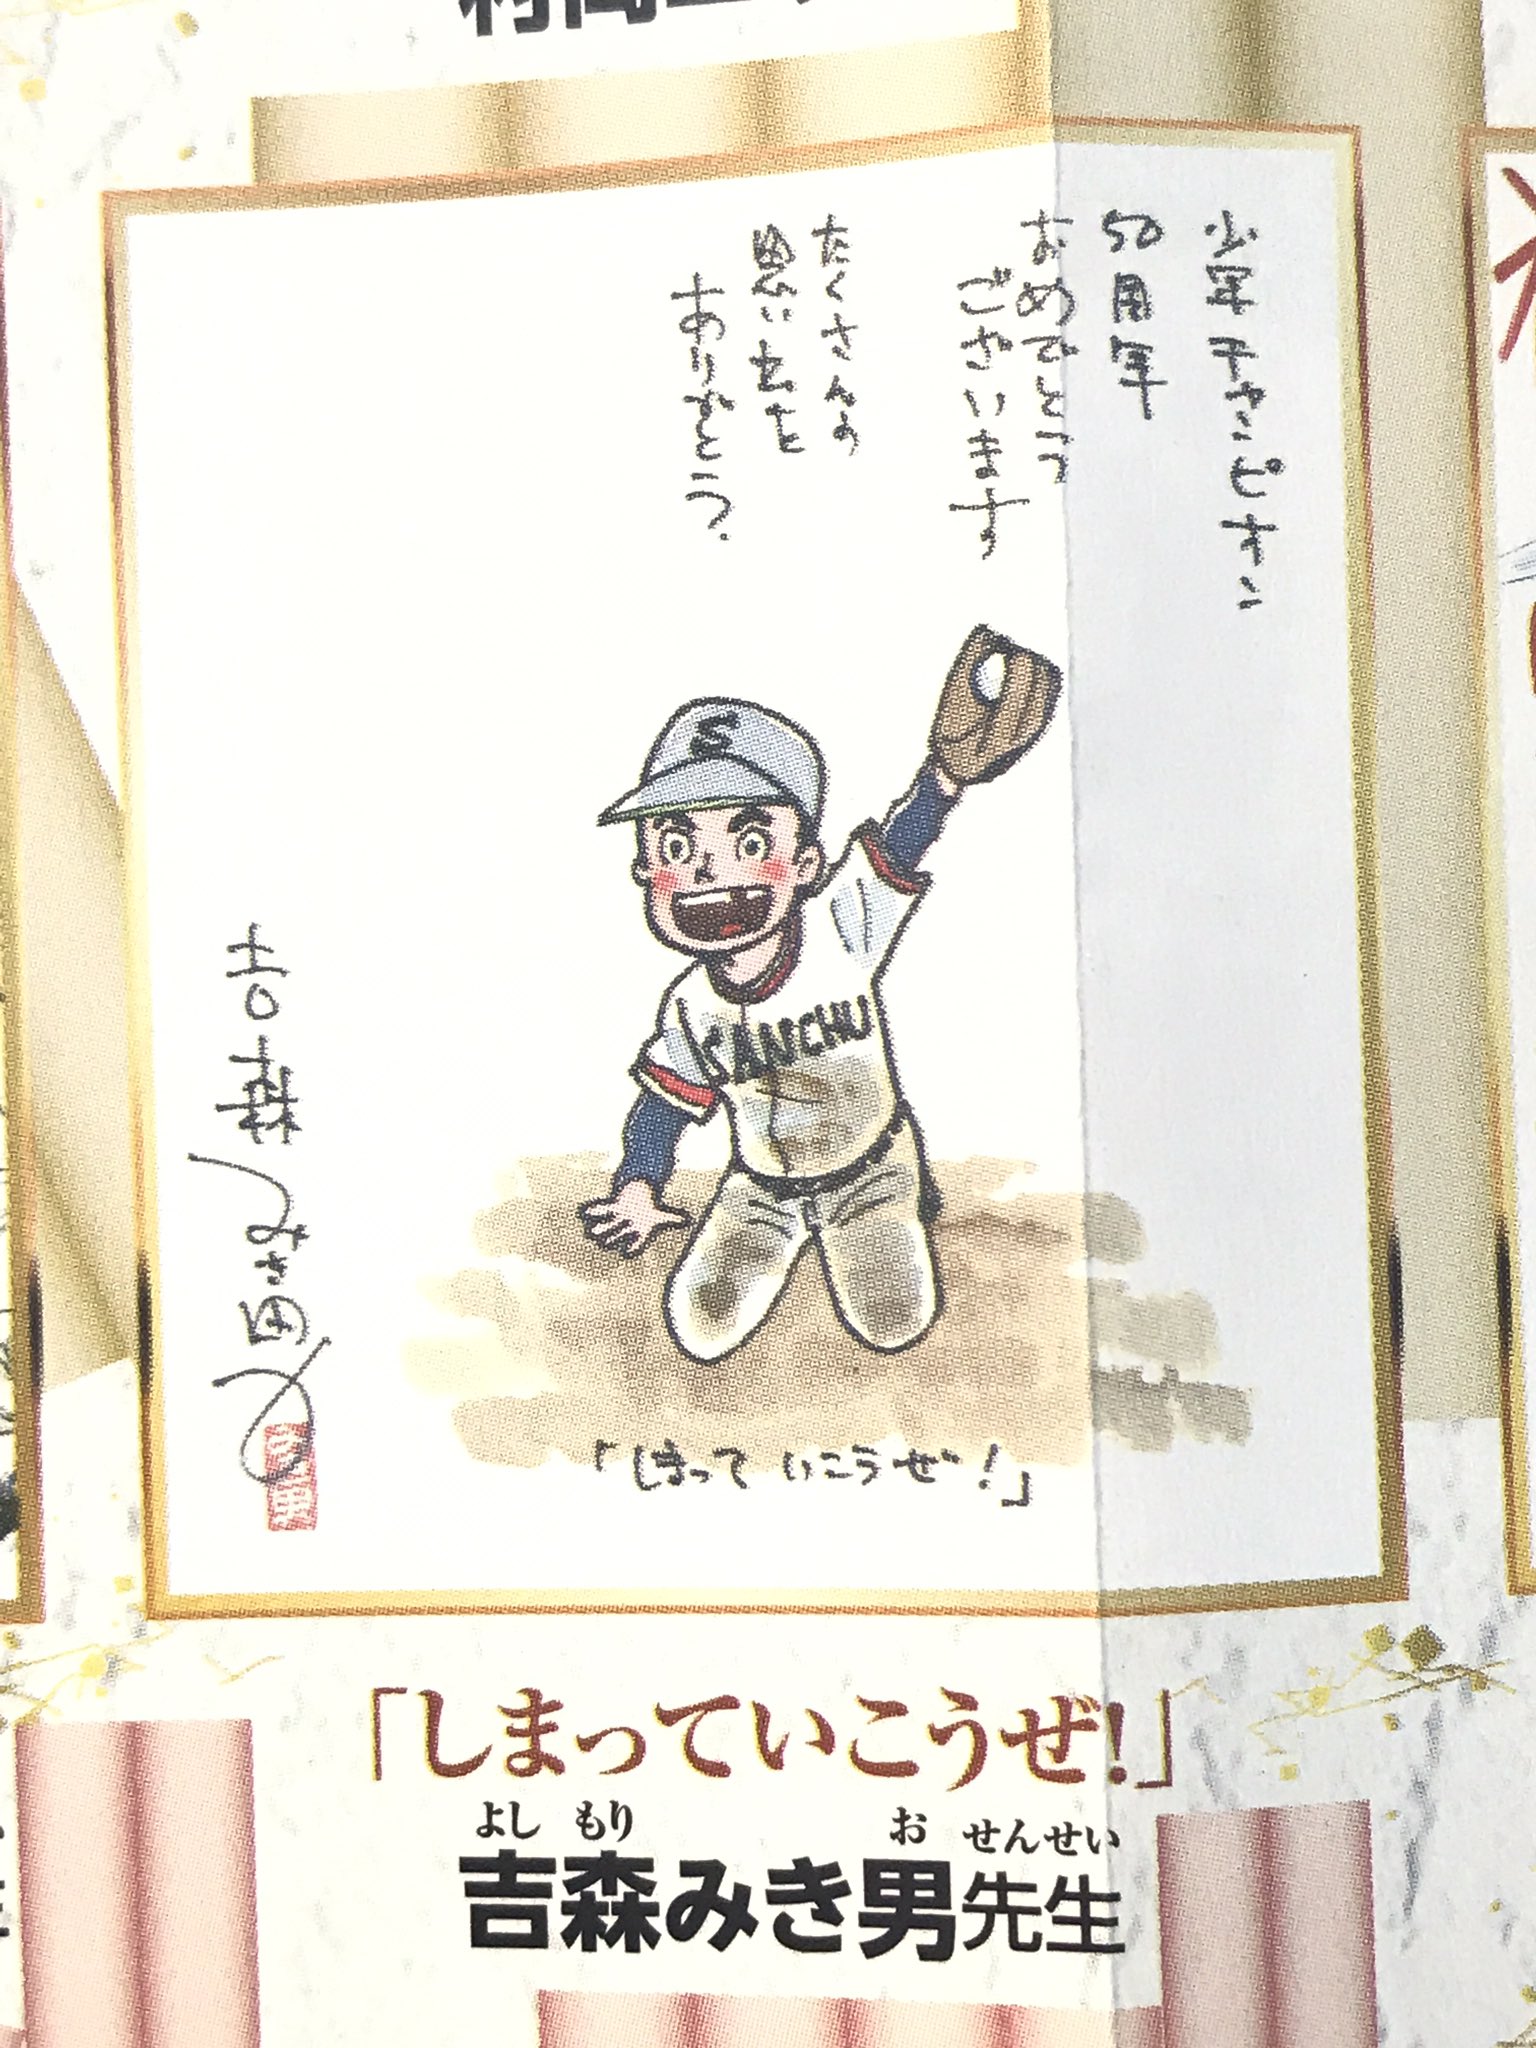 少年チャンピオン
50周年
おめでとう
ございます
たくさんの
思い出を
ありがとう。
S
SANCHU
吉森みき男
「しまって いこうぜ！」
「しまっていこうぜ!」
よし もり お せんせい
吉森みき男先生